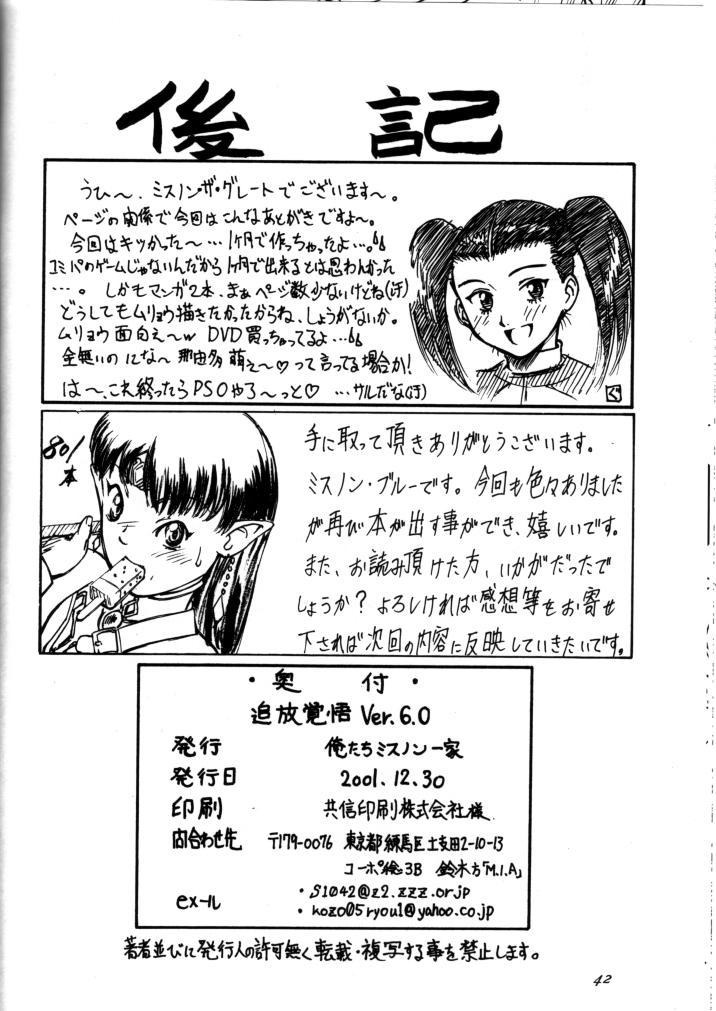 後記
うひ～、ミスノン・ザ・グレートでございます～。
ページの関係で今回はこんなあとがきですよ～。
今回はキツかった～…1ヶ月で作っちゃったよ…。
コミパのゲームじゃないんだから1ヶ月で出来るとは思わんかった
…。しかもマンガ2本、まぁページ数少ないけどね(汗)
どうしてもムリョウ描きたかったからね、しょうがないか。
ムリョウ面白ぇ～w DVD買っちゃってるよ…
金無いのにな～ 那由多萌え～♡って言ってる場合か!
は～、これ終ったらPSOやろ～っと♡ …サルだな(汗)
ぐ
801
本
手に取って頂きありがとうございます。
ミスノン・ブルーです。今回も色々ありました
が再び本が出す事ができ、嬉しいです。
また、お読み頂けた方、いかがだったで
しょうか?よろしければ感想等をお寄せ
下されば次回の内容に反映していきたいです。
・奥付・
追放覚悟 Ver.6.0
発行 俺たちミスノン一家
発行日 2001.12.30
印刷 共信印刷株式会社様
問合わせ先 〒179-0076 東京都練馬区土支田2-10-13
コーポ絵3B 鈴木方「M.I.A」
exール ・S1042@z2.zzz.or.jp
・kozo05ryou1@yahoo.co.jp
著者並びに発行人の許可無く転載・複写する事を禁止します。
42